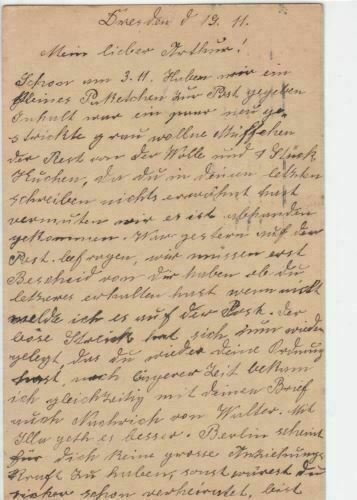 Dresden d 19. 11.
Mein lieber Arthur!
Schon am 3.11. Haben wir ein
kleines Paketchen zur Post gegeben
Inhalt war ein paar neu ge-
strickte grau wollne Müffchen
der Rest von der Wolle und 1 Stück
Kuchen, da du in deinen letzten
schreiben nichts erwähnst hast
vermuten wir es ist abhanden
gekommen. War gestern auf der
Post. befragen, wir müssen erst
Bescheid von dir haben ob du
letzeres erhalten hast wenn nicht
melde ich es auf der Post. der
böse Streik hat sich nun wieder
gelegt das du wieder deine Ordnung
hast, nach längerer Zeit bekam
ich gleichzeitig mit deinen Brief
auch Nachrich von Walter. Mit
Illa geth es besser. Berlin scheint
für dich keine grosse Anziehungs
Kraft zu haben, sonst würest du
sicher schon verheiratet, leist